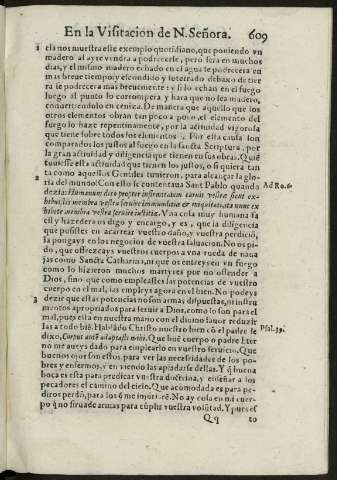 En la Visitacion de N. Señora. 609
1 ela nos muestra este exemplo quotidiano, que poniendo vn
madero al ayre vendra a podrecerse, pero sera en muchos
dias, y el mismo madero echado en el agua se podrecera en
mas breve tiempo y escondido y soterrado debaxo de tier
ra se podrecera mas brevemente: y si lo echan en el fuego
luego al punto lo corrompera y hara que no sea madero,
convertiendolo en ceniza. De manera que aquello que los
otros elementos obran tan poco a poco, el elemento del
fuego lo haze repentinamente, por la actividad vigorosa
que tiene sobre todos los elementos. Por esta causa son
comparados los justos al fuego en la sancta Scriptura, por
la gran actividad y diligencia que tienen en sus obras. Quiē
tuviesse esta actividad que tienen los justos, o si quiera tan
2 ta como aquellos Gentiles tuvieron, para alcançar la glo
ria del mundo! Con esto se contentava Sant Pablo quando
dezia: Humanum dico propter infirmitatem carnis vestræ sicut ex-
hibuistis membra vestra servire immunditiæ et iniquitati, ita nunc ex
hibete membra vestra servire iustitiæ. Vna cosa muy humana fa
cil y hazedera os digo y encargo, y es, que la diligencia
que pusistes en acarrear vuestro daño, y vuestra perdiciō,
la pongays en los negocios de vuestra salvacion. No os pi-
do, que ofrezcays vuestros cuerpos a vna rueda de nava
jas como Sancta Catharina, ni que os entreys en vn fuego
como lo hizieron muchos martyres por no offender a
Dios, sino que como empleastes las potencias de vuestro
cuerpo en el mal, las empleys agora en el bien. No podeys
3 dezir que estas potencias no son armas dispuestas, ni instru
mentos apropriados para servir a Dios, como lo son para el
mal, pues esta en nuestra mano con el divino favor reduzir
las a todo biē. Hablādo Christo nuestro bien cō el padre le
dixo, Corpus autē adaptasti mihi. Que hūe cuerpo o padre Eter
no me aveys dado para emplearlo en vuestro servicio. Que
buenos ojos son estos, para ver las necessidades de los po-
bres y enfermos, y en viendo las apiadarse dellas. Y q̄ buena
boca es esta para predicar vuestra doctrina, y enseñar a los
pecadores el camino del cielo. Que acomodada es para pe-
diros perdō, para los q̄ me injuriarē. No ay cosa en mi cuer-
po q̄ no sirva de armas para cūplir vuestra volūtad. Y pues es
Q q to
Ad Ro. 6.
Psal. 39.